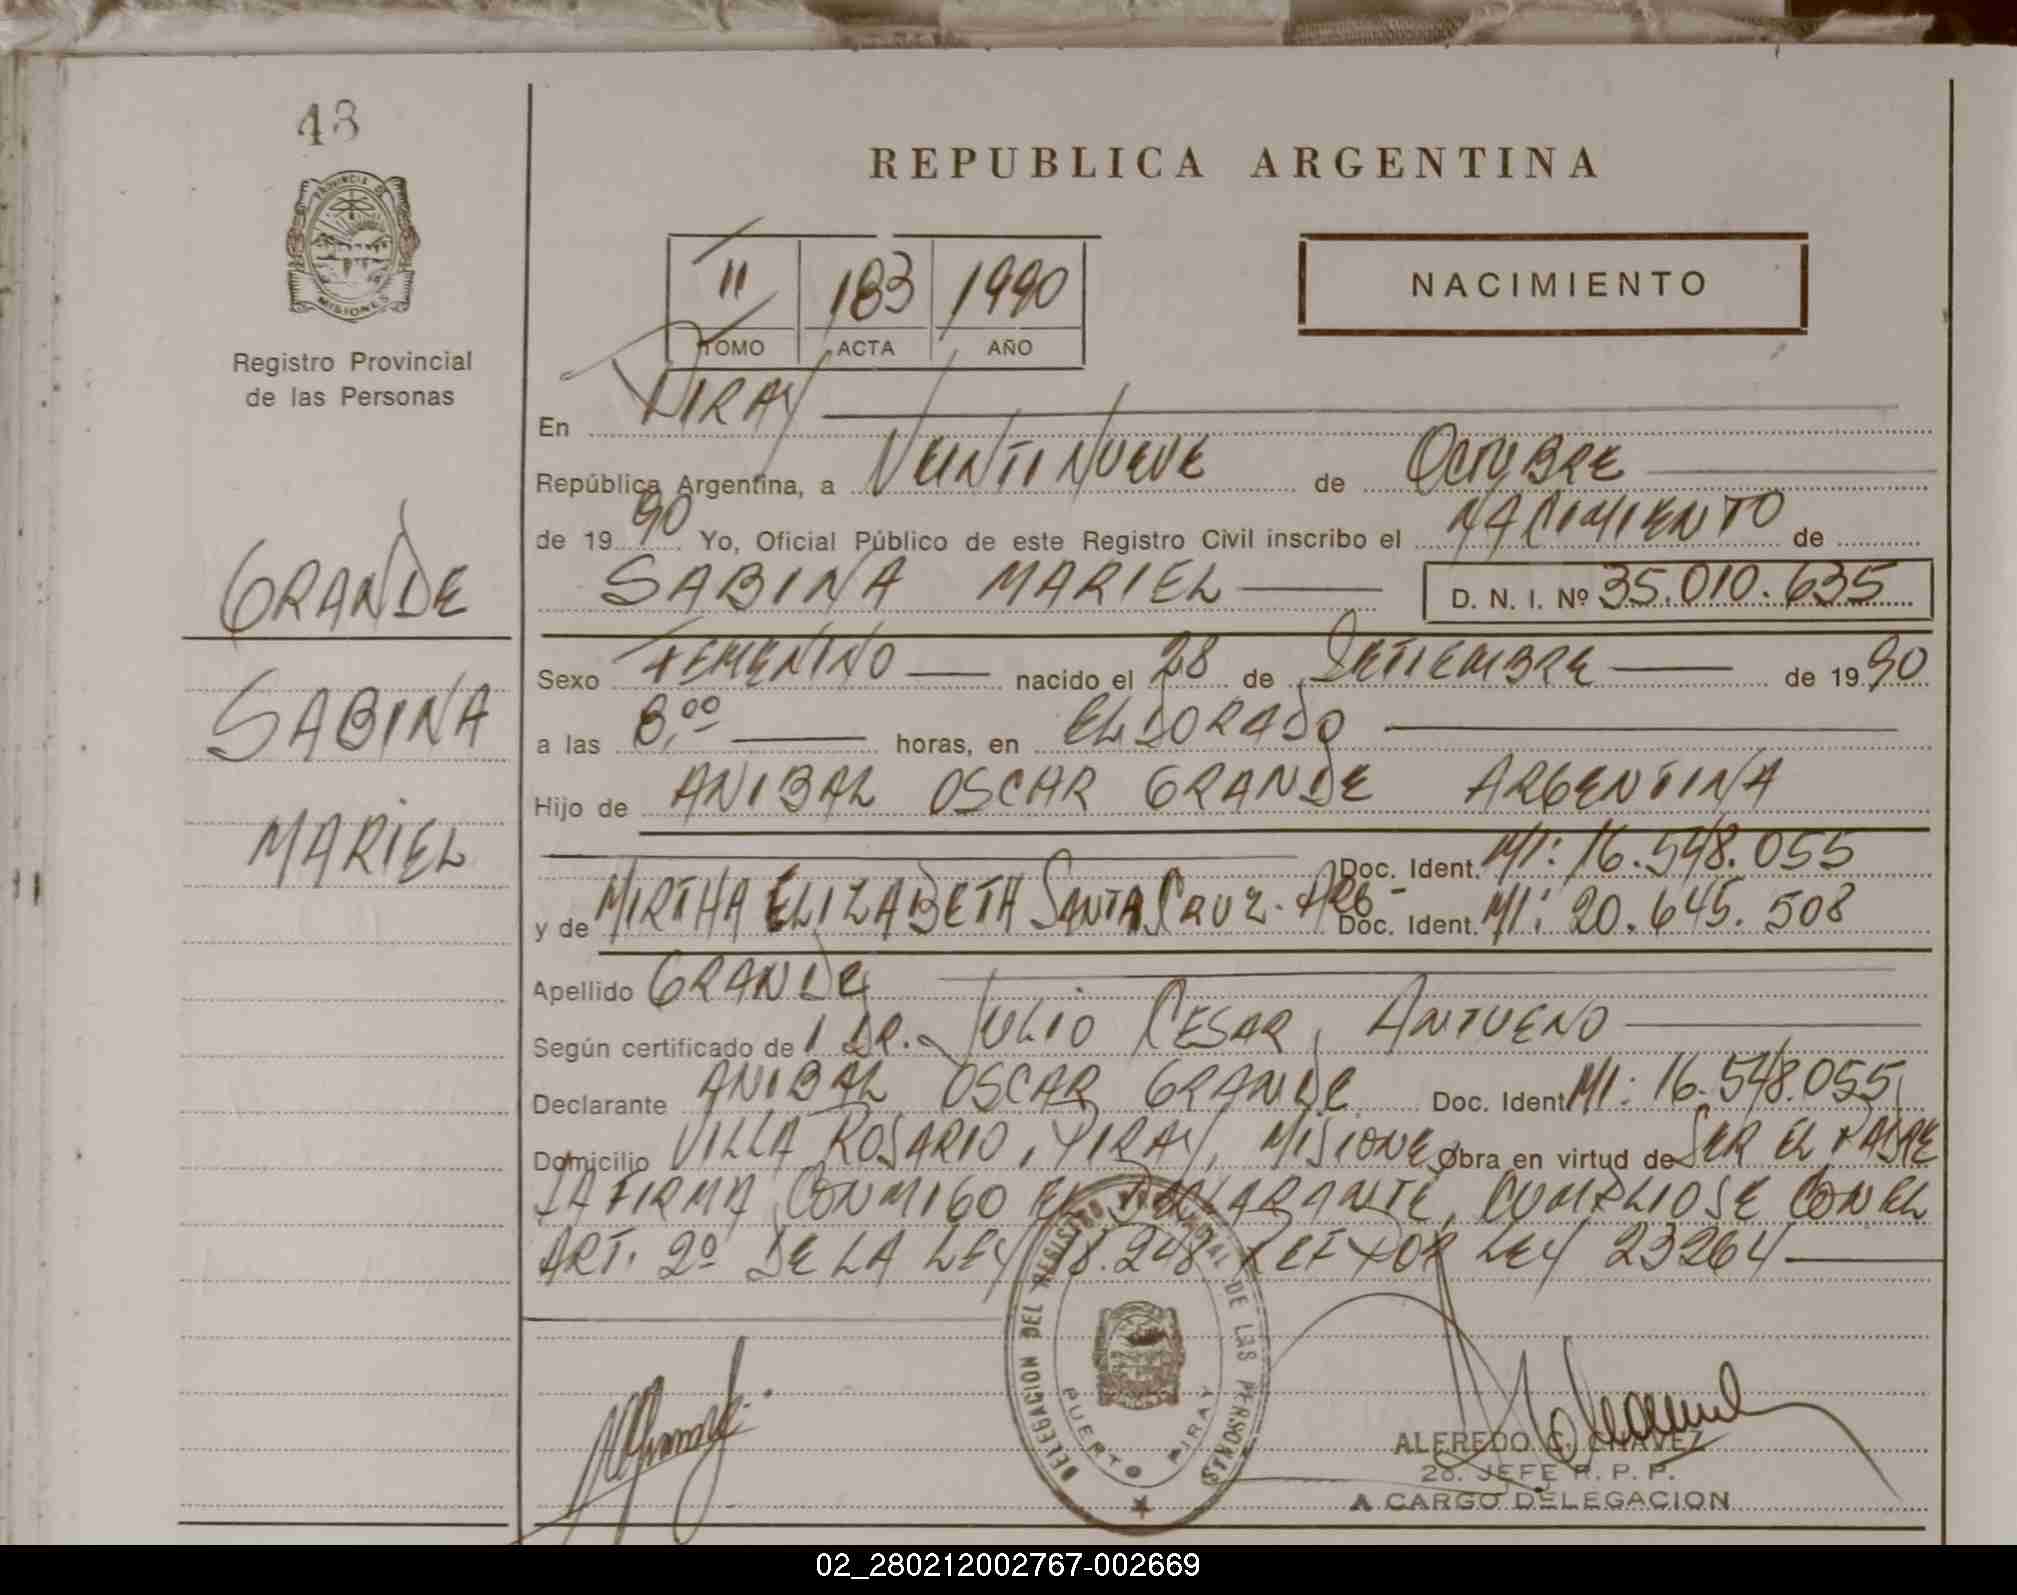 43
PROVINCIA DE
MISIONES
Registro Provincial
de las Personas
GRANDE
SABINA
MARIEL
REPUBLICA ARGENTINA
II 183 1990
TOMO ACTA AÑO
NACIMIENTO
En PIRAY
República Argentina, a VEINTINUEVE de OCTUBRE
de 1990 Yo, Oficial Público de este Registro Civil inscribo el NACIMIENTO de
SABINA MARIEL D. N. I. Nº 35.010.635
Sexo FEMENINO nacido el 28 de SETIEMBRE de 1990
a las 8,00 horas, en ELDORADO
Hijo de ANIBAL OSCAR GRANDE ARGENTINA
Doc. Ident. MI: 16.548.055
y de MIRTHA ELIZABETH SANTA CRUZ - ARG - Doc. Ident. MI: 20.645.508
Apellido GRANDE
Según certificado de DR. JULIO CESAR, ANTUENO
Declarante ANIBAL OSCAR GRANDE Doc. Ident MI: 16.548.055
Domicilio VILLA ROSARIO, PIRAY, MISIONES Obra en virtud de SER EL PADRE
LA FIRMA CONMIGO EL DECLARANTE, CUMPLIOSE CON EL
ART. 2º DE LA LEY 18.248 REF POR LEY 23264
DELEGACION DEL REGISTRO PROVINCIAL DE LAS PERSONAS
PUERTO PIRAY
ALFREDO C. CHAVEZ
2o. JEFE R. P. P.
A CARGO DELEGACION
02_280212002767-002669